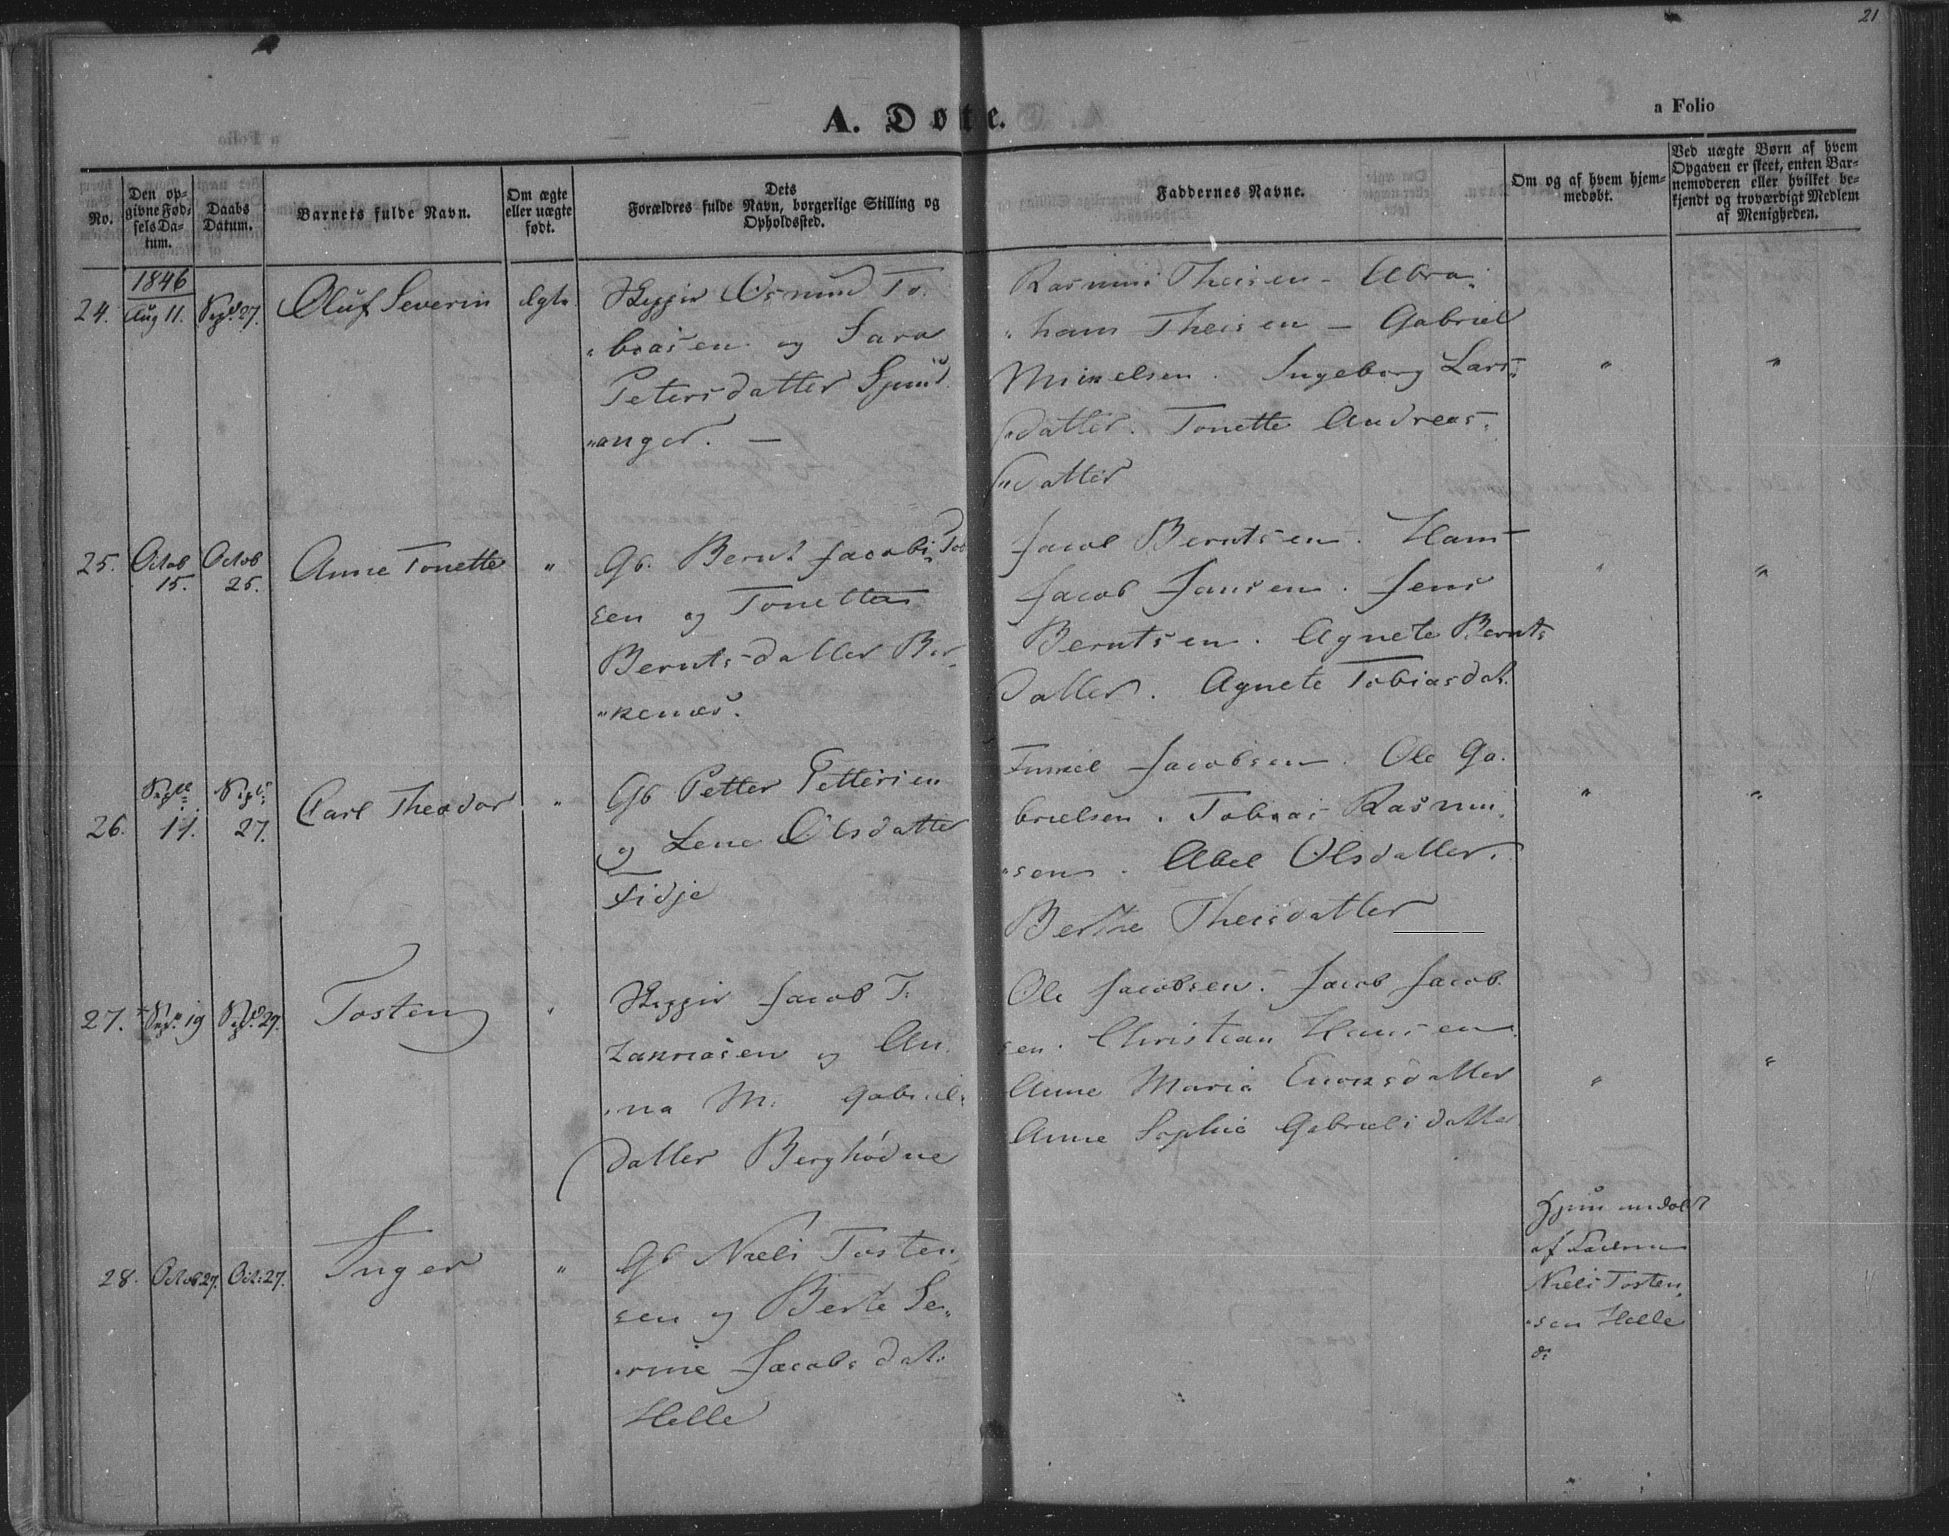 21
A. Døte.
a Folio
No.
Den op-
givne Fød-
sels Da-
tum.
Daabs
Datum.
Barnets fulde Navn.
Om ægte
eller uægte
født.
Dets
Forældres fulde Navn, borgerlige Stilling og
Opholdssted.
Faddernes Navne.
Om og af hvem hjem-
medøbt.
Ved uægte Børn af hvem
Opgaven er skeet, enten Bar-
nemoderen eller hvilket be-
kjendt og troværdigt Medlem
af Menigheden.
1846
24. Aug 11. Sept. 27. Oluf Severin ægte
Skipper Osmund To-
biasen og Sara
Petersdatter
anger. —
Rasmus Theisen – Abra-
ham Theisen – Gabriel
Mikkelsen. Ingeborg Lars-
datter. Tonette Andreas-
datter
" "
25. Octob 15. Octob 25. Anne Tonette "
Gb. Bernt Jacob
sen og Tonette
Berntsdatter Bir-
kenæs.
Jacob Berntsen. Hans
Jacob Jansen. Jens
Berntsen. Agnete Bernts
datter. Agnete Tobiasdat.
" "
26. Septbr 11. Septbr 27. Carl Theodor "
Gb Petter Pettersen
og Lene Olsdatter
Fidje
Jacobsen. Ole Ga-
brielsen. Tobias Rasmu-
sen. Abel Olsdatter.
Berthe Theisdatter
" "
27. Sept. 19 Sept. 27. Tosten "
Skipper Jacob T.
Zakriasen og An-
na M. Gabriels
datter Berghødne
Ole Jacobsen. Jacob Jacob-
sen. Christian Hansen
Anne Maria Enoksdatter
Anne Sophie Gabrielsdatter
" "
28. Octob 27. Oct. 27. Inger "
Gb Niels Tosten-
sen og Berte Se-
rine Jacobsdat.
Helle
Hjemmedøbt
af Faderen
Niels Tosten-
sen Helle